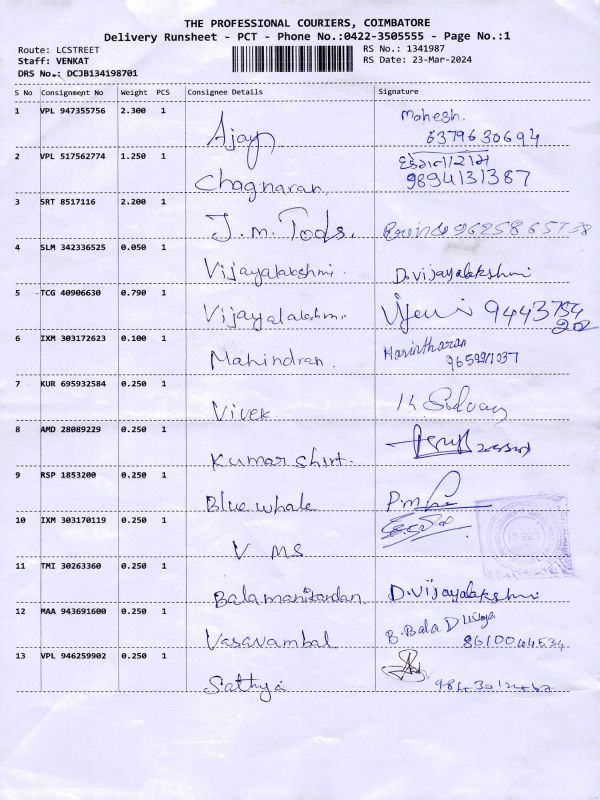 THE PROFESSIONAL COURIERS, COIMBATORE
Delivery Runsheet - PCT - Phone No.:0422-3505555 - Page No.:1
Route: LCSTREET RS No.: 1341987
Staff: VENKAT RS Date: 23-Mar-2024
DRS No.: DCJB134198701
S No Consignment No Weight PCS Consignee Details Signature
1 VPL 947355756 2.300 1 Ajay Mahesh.
6379630694
2 VPL 517562774 1.250 1 Chagnaran
9894131387
3 SRT 8517116 2.200 1 J.m. Tods.
4 SLM 342336525 0.050 1 Vijayalakshmi. D.vijayalakshmi
5 TCG 40906630 0.790 1 Vijayalakshmi 9443754
202
6 IXM 303172623 0.100 1 Mahindran. Harintharan
7 KUR 695932584 0.250 1 Vivek
8 AMD 28089229 0.250 1 Kumar shirt.
9 RSP 1853200 0.250 1 Blue whale
10 IXM 303170119 0.250 1 V MS
11 TMI 30263360 0.250 1 Balamanikandan. D.vijayalakshmi
12 MAA 943691600 0.250 1 Vasavambal B. Bala
8610044534.
13 VPL 946259902 0.250 1 Sathya